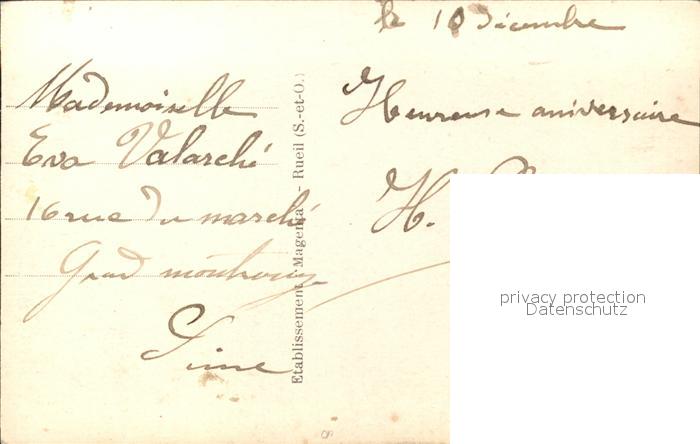 le 10 Décembre
Mademoiselle
Eva Valarché
16 rue du marché
Grand montrouge
Seine
Heureuse aniversaire
H.
Etablissement Magenta - Rueil (S.-et-O.)
privacy protection
Datenschutz